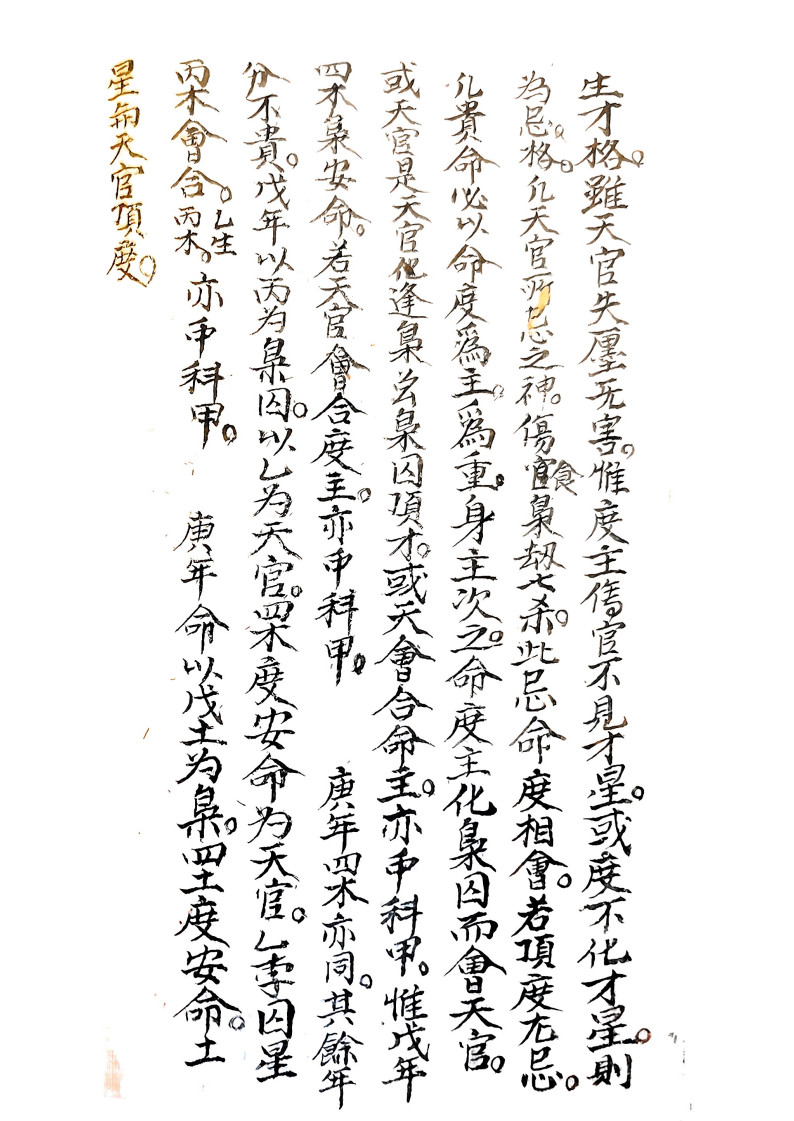 生才格。雖天官失廛无害。惟度主傷官不見才星。或度不化才星。則
為忌格。凢天官所忌之神。傷官食梟刼七杀。此忌命度相會。若項度尤忌。
凢貴命必以命度爲主。爲重身主次之。命度主化梟囚而會天官。
或天官是天官化逢梟公梟囚項才。或天會合命主。亦中科甲。惟戊年
四木梟安命。若天官會合度主。亦中科甲。 庚年四木亦同。其餘年
分不貴。戊年以丙为梟囚。以乙为天官。四木度安命为天官。乙孛囚星
丙木會合。乙生丙木。亦中科甲。 庚年命以戊土为梟。四土度安命。土
星每天官項度。